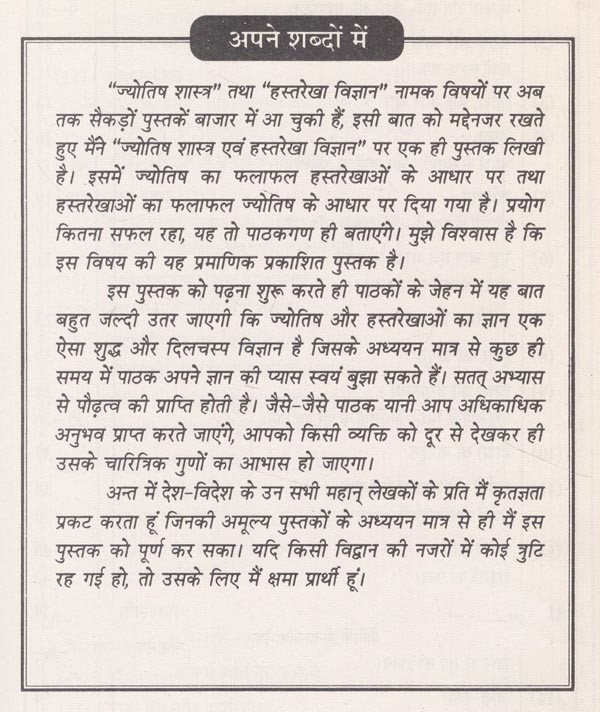 अपने शब्दों में
“ज्योतिष शास्त्र” तथा “हस्तरेखा विज्ञान” नामक विषयों पर अब
तक सैकड़ों पुस्तकें बाजार में आ चुकी हैं, इसी बात को मद्देनजर रखते
हुए मैंने “ज्योतिष शास्त्र एवं हस्तरेखा विज्ञान” पर एक ही पुस्तक लिखी
है। इसमें ज्योतिष का फलाफल हस्तरेखाओं के आधार पर तथा
हस्तरेखाओं का फलाफल ज्योतिष के आधार पर दिया गया है। प्रयोग
कितना सफल रहा, यह तो पाठकगण ही बताएंगे। मुझे विश्वास है कि
इस विषय की यह प्रमाणिक प्रकाशित पुस्तक है।
इस पुस्तक को पढ़ना शुरू करते ही पाठकों के जेहन में यह बात
बहुत जल्दी उतर जाएगी कि ज्योतिष और हस्तरेखाओं का ज्ञान एक
ऐसा शुद्ध और दिलचस्प विज्ञान है जिसके अध्ययन मात्र से कुछ ही
समय में पाठक अपने ज्ञान की प्यास स्वयं बुझा सकते हैं। सतत् अभ्यास
से पौढ़त्व की प्राप्ति होती है। जैसे-जैसे पाठक यानी आप अधिकाधिक
अनुभव प्राप्त करते जाएंगे, आपको किसी व्यक्ति को दूर से देखकर ही
उसके चारित्रिक गुणों का आभास हो जाएगा।
अन्त में देश-विदेश के उन सभी महान् लेखकों के प्रति मैं कृतज्ञता
प्रकट करता हूं जिनकी अमूल्य पुस्तकों के अध्ययन मात्र से ही मैं इस
पुस्तक को पूर्ण कर सका। यदि किसी विद्वान की नजरों में कोई त्रुटि
रह गई हो, तो उसके लिए मैं क्षमा प्रार्थी हूं।